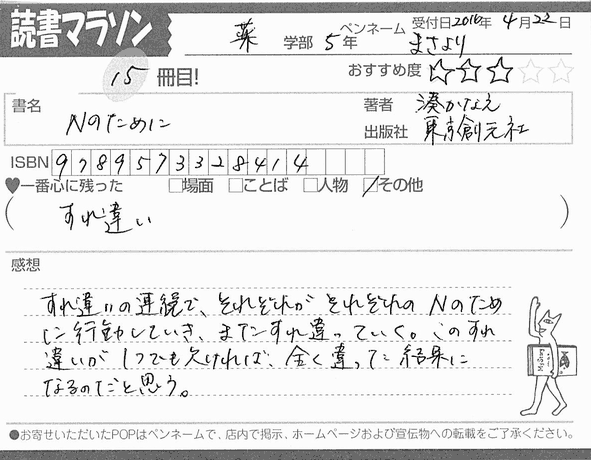 読書マラソン
薬 学部 5年 ペンネーム まさより 受付日2016年 4月22日
15 冊目! おすすめ度 ☆☆☆☆☆
書名 Nのために
著者 湊かなえ
出版社 東京創元社
ISBN 9789573328414
♥一番心に残った □場面 □ことば □人物 ☑その他
( すれ違い )
感想
すれ違いの連続で、それぞれが それぞれの Nのため
に行動していき、またすれ違っていく。このすれ
違いが 1つでも欠ければ、全く違った結果に
なるのだと思う。
●お寄せいただいたPOPはペンネームで、店内で掲示、ホームページおよび宣伝物への転載をご了承ください。